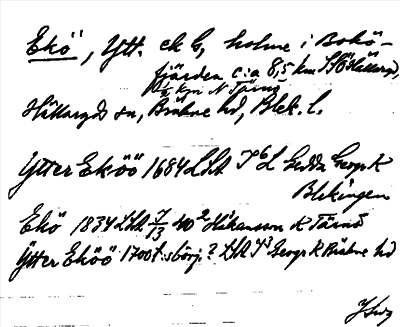 Ekö, Ytt. ek G, holme i Bokö-
fjärden c:a 8,5 km SSÖ Hällaryd,
km N Tärnö
Hällaryds sn, Bräkne hd, Blek. l.
Ytter Eköö 1684 LSA Gedda Geogr K
Blekingen
Ekö 1834 LSA Håkansson K Tärnö
Ytter Eköö 1700t:s börj.? LSA Geogr K Bräkne hd